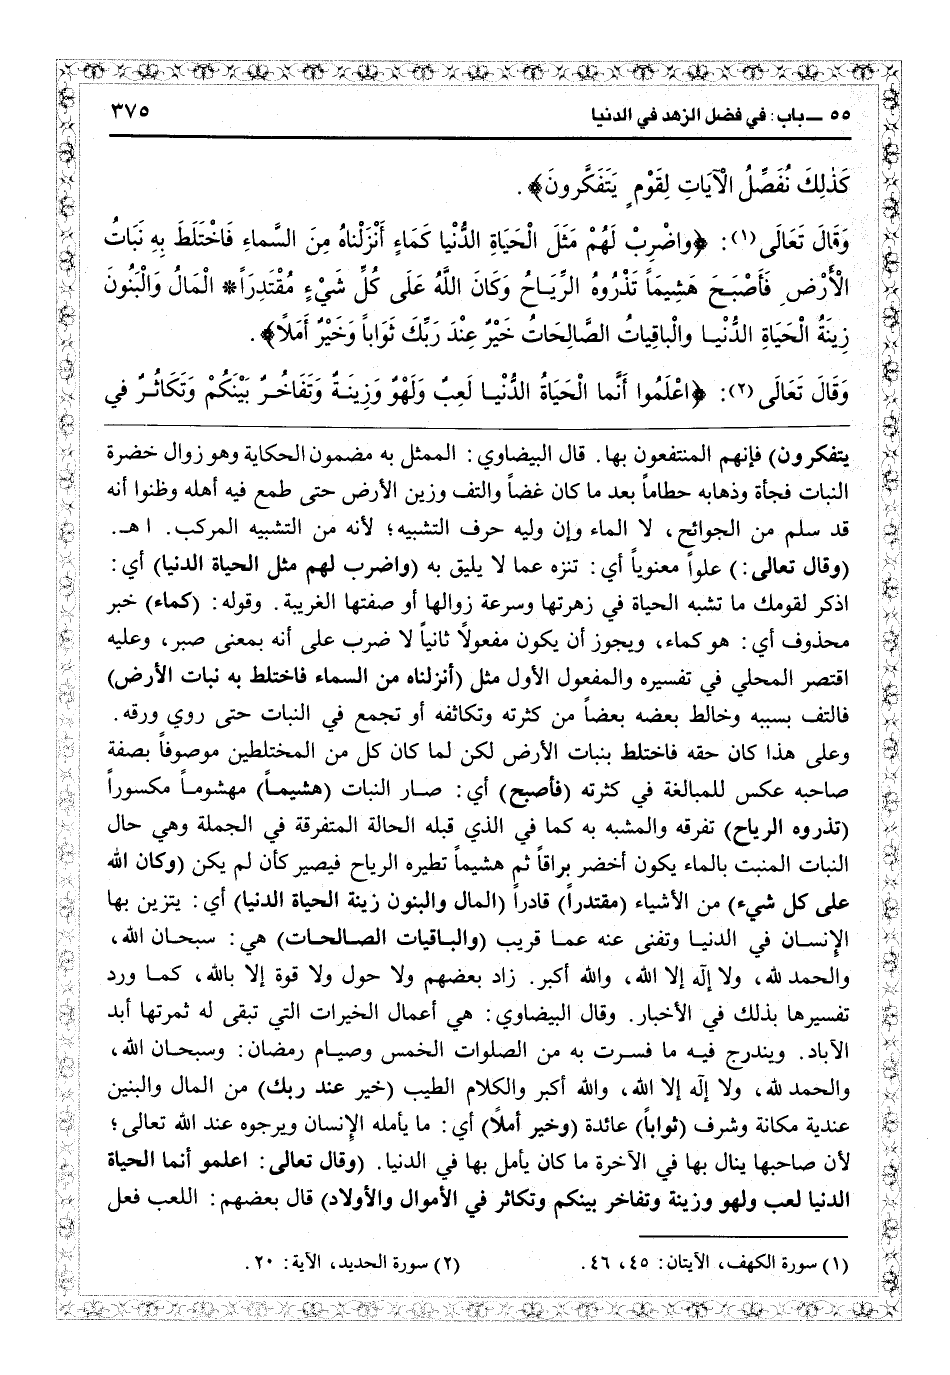 ٥٥ ــ باب: في فضل الزهد في الدنيا ٣٧٥
كَذٰلِكَ نُفَصِّلُ الْآيَاتِ لِقَوْمٍ يَتَفَكَّرونَ﴾.
وَقَالَ تَعَالَى(١): ﴿واضْرِبْ لَهُمْ مَثَلَ الْحَيَاةِ الدُّنْيا كَماءٍ أَنْزَلْناهُ مِنَ السَّماءِ فَاخْتَلَطَ بِهِ نَبَاتُ
الْأَرْضِ فَأَصْبَحَ هَشِيمَاً تَذْرُوهُ الرِّيَاحُ وَكَانَ اللَّهُ عَلَى كُلِّ شَيْءٍ مُقْتَدِرَاً* الْمَالُ وَالْبَنُونَ
زِينَةُ الْحَيَاةِ الدُّنْيا والْباقِياتُ الصَّالِحَاتُ خَيْرٌ عِنْدَ رَبِّكَ ثَوَاباً وَخَيْرٌ أَمَلاً﴾.
وَقَالَ تَعَالَى(٢): ﴿اعْلَمُوا أَنَّما الْحَيَاةُ الدُّنْيا لَعِبٌ وَلَهْوٌ وَزِينَةٌ وَتَفَاخُرٌ بَيْنَكُمْ وَتَكَاثُرٌ في
يتفكرون) فإنهم المنتفعون بها. قال البيضاوي: الممثل به مضمون الحكاية وهو زوال خضرة
النبات فجأة وذهابه حطاماً بعد ما كان غضاً والتف وزين الأرض حتى طمع فيه أهله وظنوا أنه
قد سلم من الجوائح، لا الماء وإن وليه حرف التشبيه؛ لأنه من التشبيه المركب. اهـ.
(وقال تعالى:) علواً معنوياً أي: تنزه عما لا يليق به (واضرب لهم مثل الحياة الدنيا) أي:
اذكر لقومك ما تشبه الحياة في زهرتها وسرعة زوالها أو صفتها الغريبة. وقوله: (كماء) خبر
محذوف أي: هو كماء، ويجوز أن يكون مفعولاً ثانياً لا ضرب على أنه بمعنى صبر، وعليه
اقتصر المحلي في تفسيره والمفعول الأول مثل (أنزلناه من السماء فاختلط به نبات الأرض)
فالتف بسببه وخالط بعضه بعضاً من كثرته وتكاثفه أو تجمع في النبات حتى روي ورقه.
وعلى هذا كان حقه فاختلط بنبات الأرض لكن لما كان كل من المختلطين موصوفاً بصفة
صاحبه عكس للمبالغة في كثرته (فأصبح) أي: صار النبات (هشيماً) مهشوماً مكسوراً
(تذروه الرياح) تفرقه والمشبه به كما في الذي قبله الحالة المتفرقة في الجملة وهي حال
النبات المنبت بالماء يكون أخضر براقاً ثم هشيماً تطيره الرياح فيصير كأن لم يكن (وكان الله
على كل شيء) من الأشياء (مقتدراً) قادراً (المال والبنون زينة الحياة الدنيا) أي: يتزين بها
الإنسان في الدنيا وتفنى عنه عما قريب (والباقيات الصالحات) هي: سبحان الله،
والحمد لله، ولا إلٰه إلا الله، والله أكبر. زاد بعضهم ولا حول ولا قوة إلا بالله، كما ورد
تفسيرها بذلك في الأخبار. وقال البيضاوي: هي أعمال الخيرات التي تبقى له ثمرتها أبد
الآباد. ويندرج فيه ما فسرت به من الصلوات الخمس وصيام رمضان: وسبحان الله،
والحمد لله، ولا إلٰه إلا الله، والله أكبر والكلام الطيب (خير عند ربك) من المال والبنين
عندية مكانة وشرف (ثواباً) عائدة (وخير أملًا) أي: ما يأمله الإنسان ويرجوه عند الله تعالى؛
لأن صاحبها ينال بها في الآخرة ما كان يأمل بها في الدنيا. (وقال تعالى: اعلمو أنما الحياة
الدنيا لعب ولهو وزينة وتفاخر بينكم وتكاثر في الأموال والأولاد) قال بعضهم: اللعب فعل
(١) سورة الكهف، الآيتان: ٤٥، ٤٦. (٢) سورة الحديد، الآية: ٢٠.